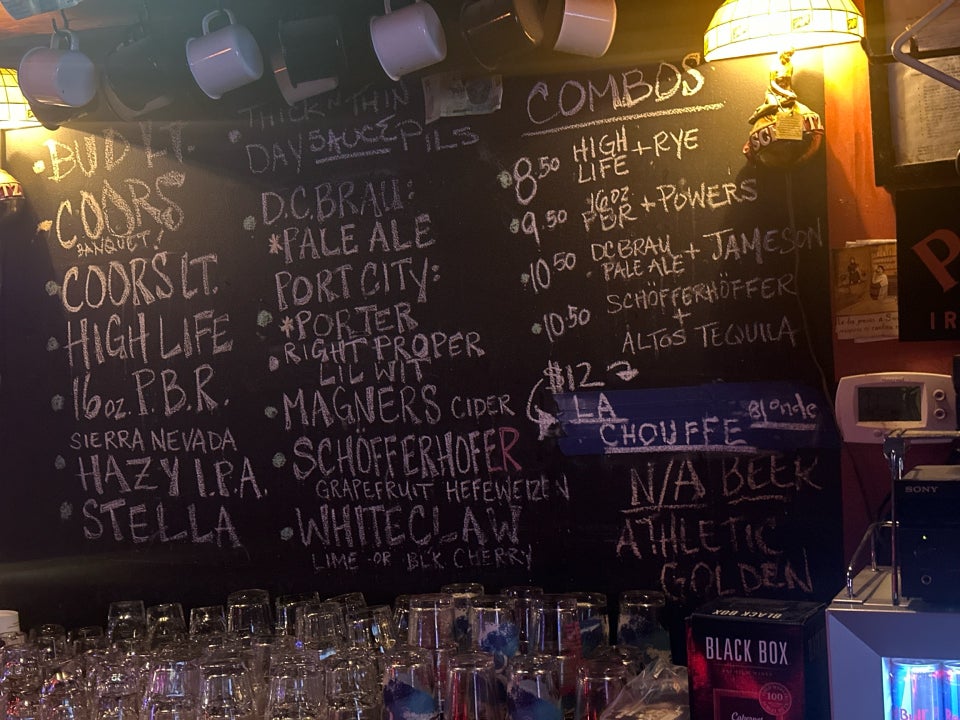 BUD LT.
COORS
BANQUET!
COORS LT.
HIGH LIFE
16oz. P.B.R.
SIERRA NEVADA
HAZY I.P.A.
STELLA
THICK N THIN
DAY SAUCE PILS
D.C. BRAU:
*PALE ALE
PORT CITY:
*PORTER
RIGHT PROPER
LIL WIT
MAGNERS CIDER
SCHÖFFERHOFER
GRAPEFRUIT HEFEWEIZEN
WHITECLAW
LIME OR BLK CHERRY
COMBOS
8.50 HIGH LIFE + RYE
9.50 16oz PBR + POWERS
10.50 DC BRAU PALE ALE + JAMESON
10.50 SCHÖFFERHÖFFER
+
ALTOS TEQUILA
$12
LA Blonde
CHOUFFE
N/A BEER
ATHLETIC
GOLDEN
SONY
BLACK BOX
BLACK BOX
100
Cabernet